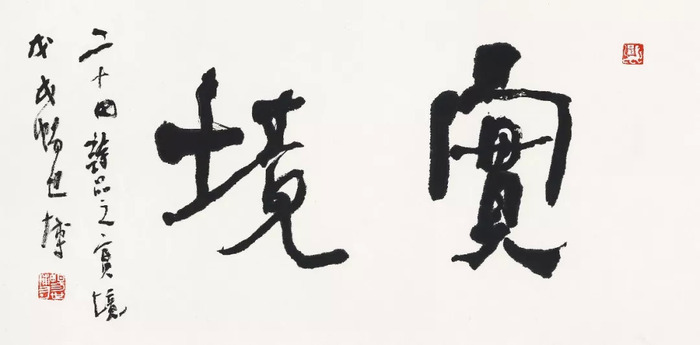 實境
二十四詩品之實境
戊戌